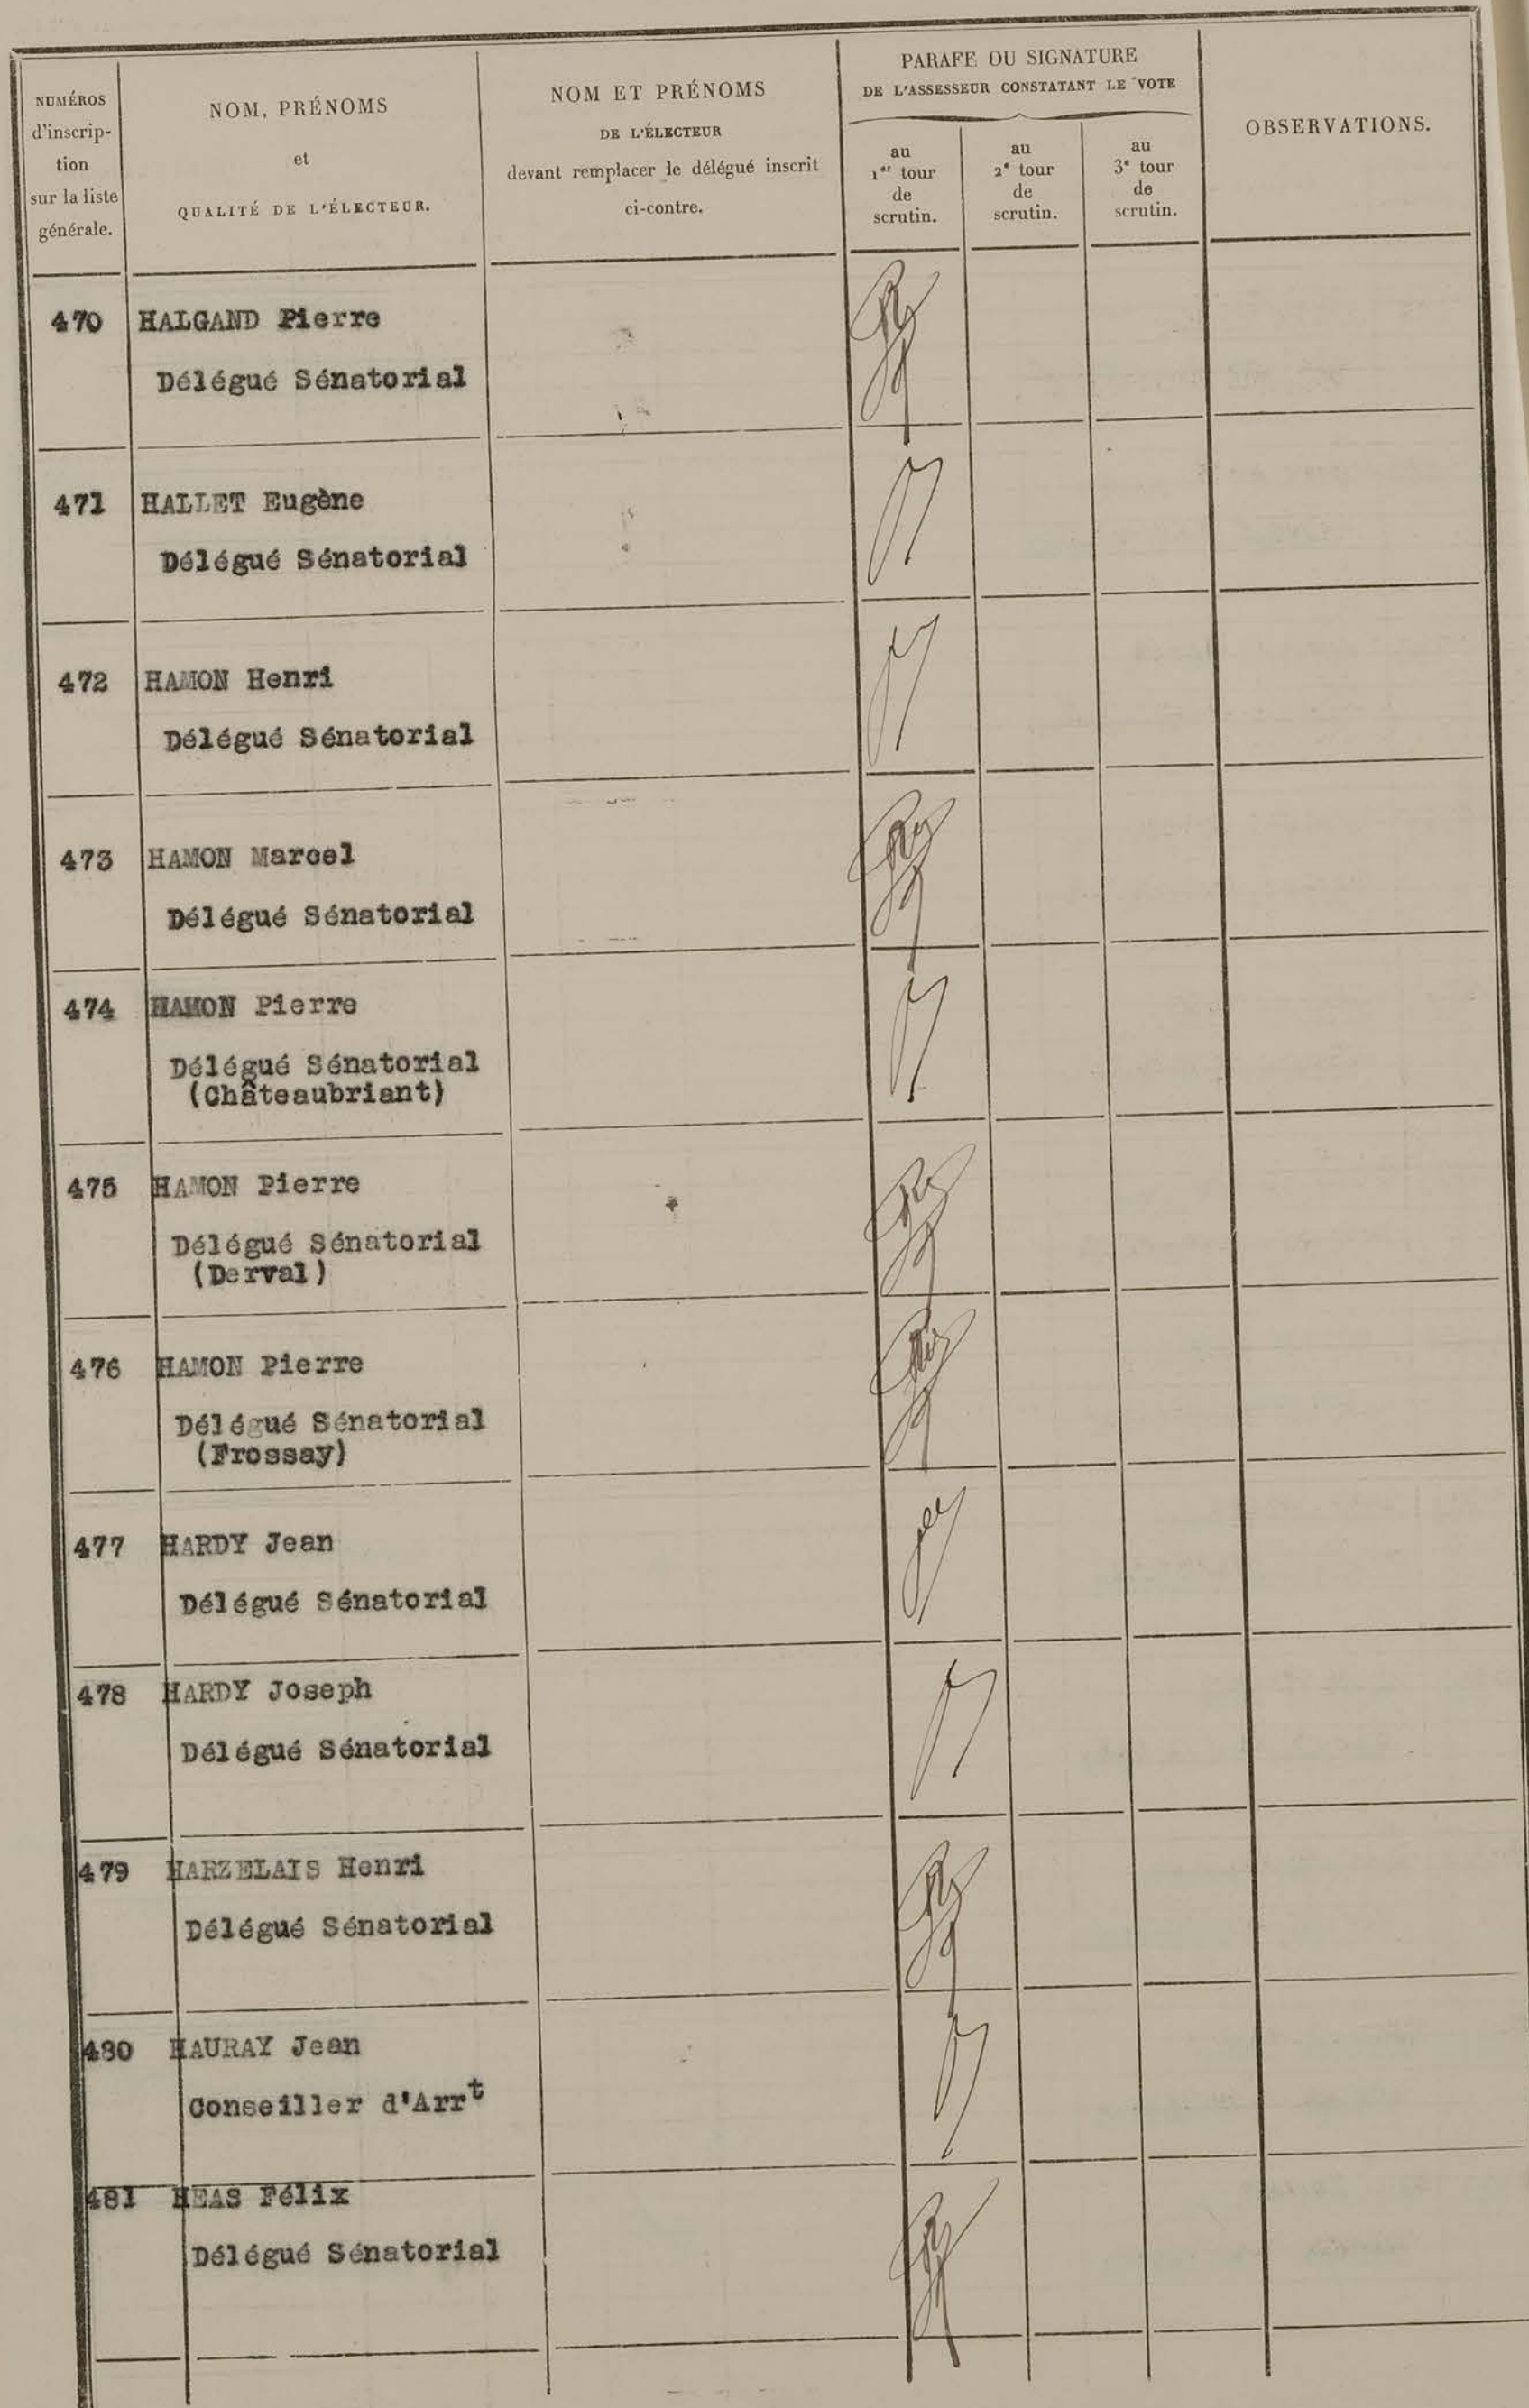 NUMÉROS
d'inscrip-
tion
sur la liste
générale.
NOM, PRÉNOMS
et
QUALITÉ DE L'ÉLECTEUR.
NOM ET PRÉNOMS
DE L'ÉLECTEUR
devant remplacer le délégué inscrit
ci-contre.
PARAFE OU SIGNATURE
DE L'ASSESSEUR CONSTATANT LE VOTE
au
1er tour
de
scrutin.
au
2e tour
de
scrutin.
au
3e tour
de
scrutin.
OBSERVATIONS.
470 HALGAND Pierre
Délégué Sénatorial
471 HALLET Eugène
Délégué Sénatorial
472 HAMON Henri
Délégué Sénatorial
473 HAMON Marcel
Délégué Sénatorial
474 HAMON Pierre
Délégué Sénatorial
(Châteaubriant)
475 HAMON Pierre
Délégué Sénatorial
(Derval)
476 HAMON Pierre
Délégué Sénatorial
(Frossay)
477 HARDY Jean
Délégué Sénatorial
478 HARDY Joseph
Délégué Sénatorial
479 HARZELAIS Henri
Délégué Sénatorial
480 HAURAY Jean
Conseiller d'Arrt
481 HEAS Félix
Délégué Sénatorial